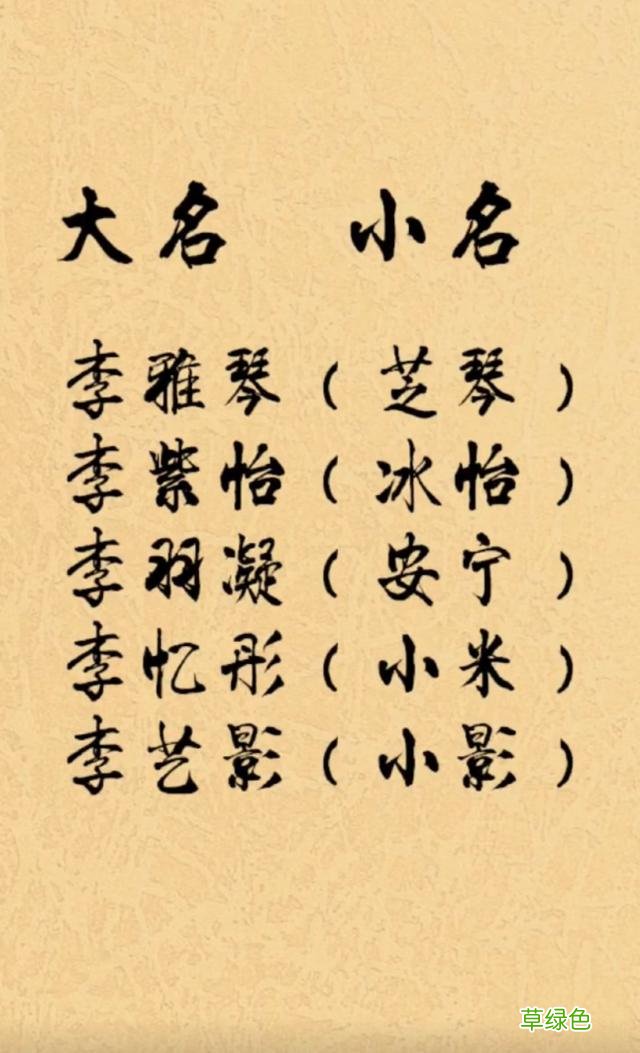 大名 小名
李雅琴(芝琴)
李紫怡(冰怡)
李羽凝(安宁)
李忆彤(小米)
李艺影(小影)
草绿色